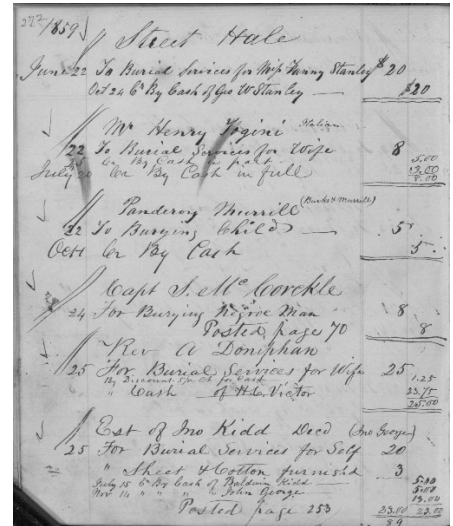 277/1859
Street Hale
June 22 To Burial Services for Miss Fanny Stanley $20
Oct 24 Cr By Cash of Geo W Stanley — $20
Mr Henry Togini Italian
22 To Burial Services for Wife 8
Cr By Cash in part 5.00
July 20 Cr By Cash in full 8.00
Murrill (Burks & Murrill)
22 To Burying Child — 5
Oct Cr By Cash 5
Capt S. McCorckle
24 For Burying Negroe Man 8
Posted page 70 8
Rev A Doniphan
25 For Burial Services for Wife 25
By Discount for Cash 1.25
" Cash of H.C. Victor 23.75
25.00
Est of Jno Kidd Decd (Jno George)
25 For Burial Services for Self 20
" Sheet & Cotton furnished 3
July 15 Cr By Cash of Baldwin Kidd — 5.00
Nov 14 " " " " John George 5.00
13.00
Posted page 253 23.00 23.00
89